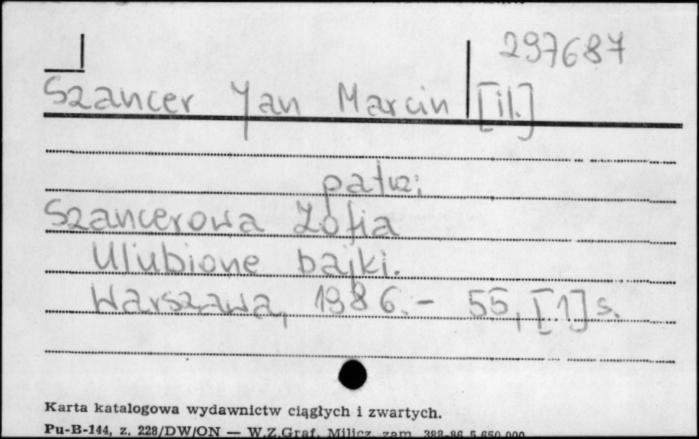 297687
Szancer Jan Marcin [il.]
patrz:
Szancerowa Zofia
Ulubione bajki.
Warszawa, 1986.- 55, [1] s.
Karta katalogowa wydawnictw ciągłych i zwartych.
Pu-B-144, z. 228/DW/ON — W.Z.Graf. Milicz, zam. 388-86 5.650.000